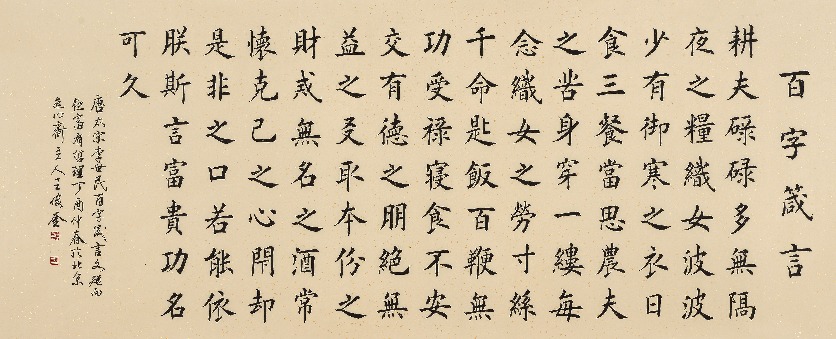 百字箴言
耕夫碌碌多無隔
夜之糧織女波波
少有御寒之衣日
食三餐當思農夫
之苦身穿一縷每
念織女之勞寸絲
千命匙飯百鞭無
功受祿寢食不安
交有德之朋絕無
益之友取本份之
財戒無名之酒常
懷克己之心閉却
是非之口若能依
朕斯言富貴功名
可久
唐太宗李世民百字箴言文短而
富有哲理丁酉仲春於北京
心齋主人王俊